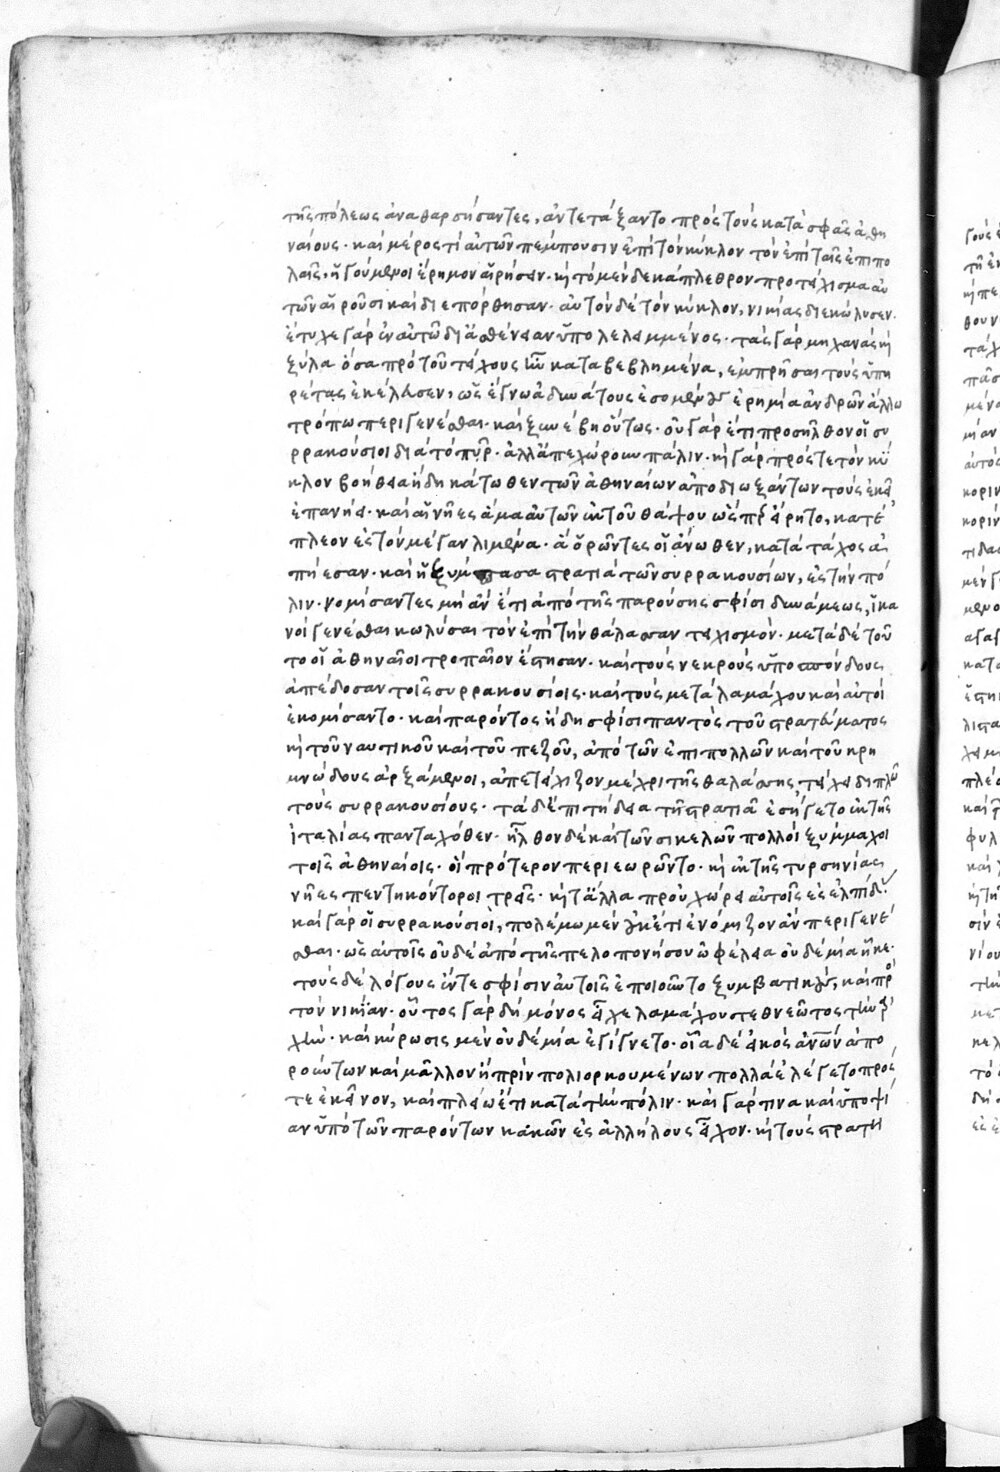 τῆς πόλεως ἀναθαρσήσαντες, ἀντετάξαντο πρὸς τοὺς κατὰ σφᾶς ἀθη
ναίους· καὶ μέρος τὶ αὐτῶν πέμπουσιν ἐπὶ τὸν κύκλον τὸν ἐπὶ ταῖς ἐπιπο
λαῖς, ἡγούμενοι ἐρῆμον αἱρήσειν· κỳ τὸ μὲν δεκάπλεθρον προτείχισμα αυ
τῶν αἱροῦσι καὶ διεπόρθησαν· αὐτὸν δὲ τὸν κύκλον, νικίας διεκώλυσεν·
ἔτυχε γὰρ ἐν αὐτῶ δι ἀσθένειαν ὑπολελειμμένος· τὰς γὰρ μηχανὰς καὶ
ξύλα ὅσα πρὸ τοῦ τείχους ἦν καταβεβλημένα, ἐμπρῆσαι τοὺς ὑπη
ρέτας ἐκέλευσεν, ὡς ἔγνω ἀδυνάτους ἐσομένους ἐρημία ἀνδρῶν ἄλλω
τρόπω περιγενέσθαι· καὶ ξυνέβη οὕτως· οὐ γὰρ ἔτι προσῆλθον οἱ συ
ρρακούσιοι διὰ τὸ πῦρ· ἀλλὰ ἀπεχώρουν πάλιν· καὶ γὰρ πρός τε τὸν κύ
κλον βοήθεια ἤδη κάτωθεν τῶν ἀθηναίων ἀποδιωξάντων τοὺς ἐκεῖ
ἐπανήει· καὶ αἱ νῆες ἅμα αὐτῶν ἐκ τοῦ θάψου ὥσπερ εἴρητο, κατέ
πλεον ἐς τὸν μέγαν λιμένα· ἃ ὁρῶντες οἱ ἄνωθεν, κατὰ τάχος ἀ
πήεσαν· καὶ ἡ ξύμπασα στρατιὰ τῶν συρρακουσίων, ἐς τὴν πό
λιν· νομίσαντες μὴ ἂν ἔτι ἀπὸ τῆς παρούσης σφίσι δυνάμεως, ἱκα
νοὶ γενέσθαι κωλῦσαι τὸν ἐπὶ τὴν θάλασσαν τειχισμόν· μετὰ δὲ τοῦ
το οἱ ἀθηναῖοι τροπαῖον ἔστησαν· καὶ τοὺς νεκροὺς ὑποσπόνδους
ἀπέδοσαν τοῖς συρρακουσίοις· καὶ τοὺς μετὰ λαμάχου καὶ αὐτοὶ
ἐκομίσαντο· καὶ παρόντος ἤδη σφίσι παντὸς τοῦ στρατεύματος
καὶ τοῦ ναυτικοῦ καὶ τοῦ πεζοῦ, ἀπὸ τῶν ἐπιπολλῶν καὶ τοῦ κρη
μνώδους ἀρξάμενοι, ἀπετείχιζον μέχρι τῆς θαλάσσης τείχει διπλῶ
τοὺς συρρακουσίους· τὰ δ' ἐπιτήδεια τῆ στρατιᾶ ἐσήγετο ἐκ τῆς
ἰταλίας πανταχόθεν· ἦλθον δὲ καὶ τῶν σικελῶν πολλοὶ ξύμμαχοι
τοῖς ἀθηναίοις· οἳ πρότερον περιεωρῶντο· καὶ ἐκ τῆς τυρσηνίας
νῆες πεντηκόντοροι τρεῖς· καὶ τἄλλα προὐχώρει αὐτοῖς ἐς ἐλπίδας·
καὶ γὰρ οἱ συρρακούσιοι, πολέμω μὲν οὐκέτι ἐνόμιζον ἂν περιγενέ
σθαι· ὡς αὐτοῖς οὐδὲ ἀπὸ τῆς πελοπονήσου ὠφέλεια οὐδεμία ἧκε·
τοὺς δὲ λόγους ἔν τε σφίσιν αὐτοῖς ἐποιοῦντο ξυμβατικοὺς, καὶ πρὸς
τὸν νικίαν· οὗτος γὰρ δὴ μόνος εἶχε λαμάχου τεθνεῶτος τὴν ἀρ
χὴν· καὶ κύρωσις μὲν οὐδεμία ἐγίγνετο· οἷα δὲ εἰκὸς ἀνθρώπων ἀπο
ρούντων καὶ μᾶλλον ἢ πρὶν πολιορκουμένων πολλὰ ἐλέγετο πρός
τε ἐκεῖνον, καὶ πλείω ἔτι κατὰ τὴν πόλιν· καὶ γάρ τινα καὶ ὑποψί
αν ὑπὸ τῶν παρόντων κακῶν ἐς ἀλλήλους εἶχον· καὶ τοὺς στρατη